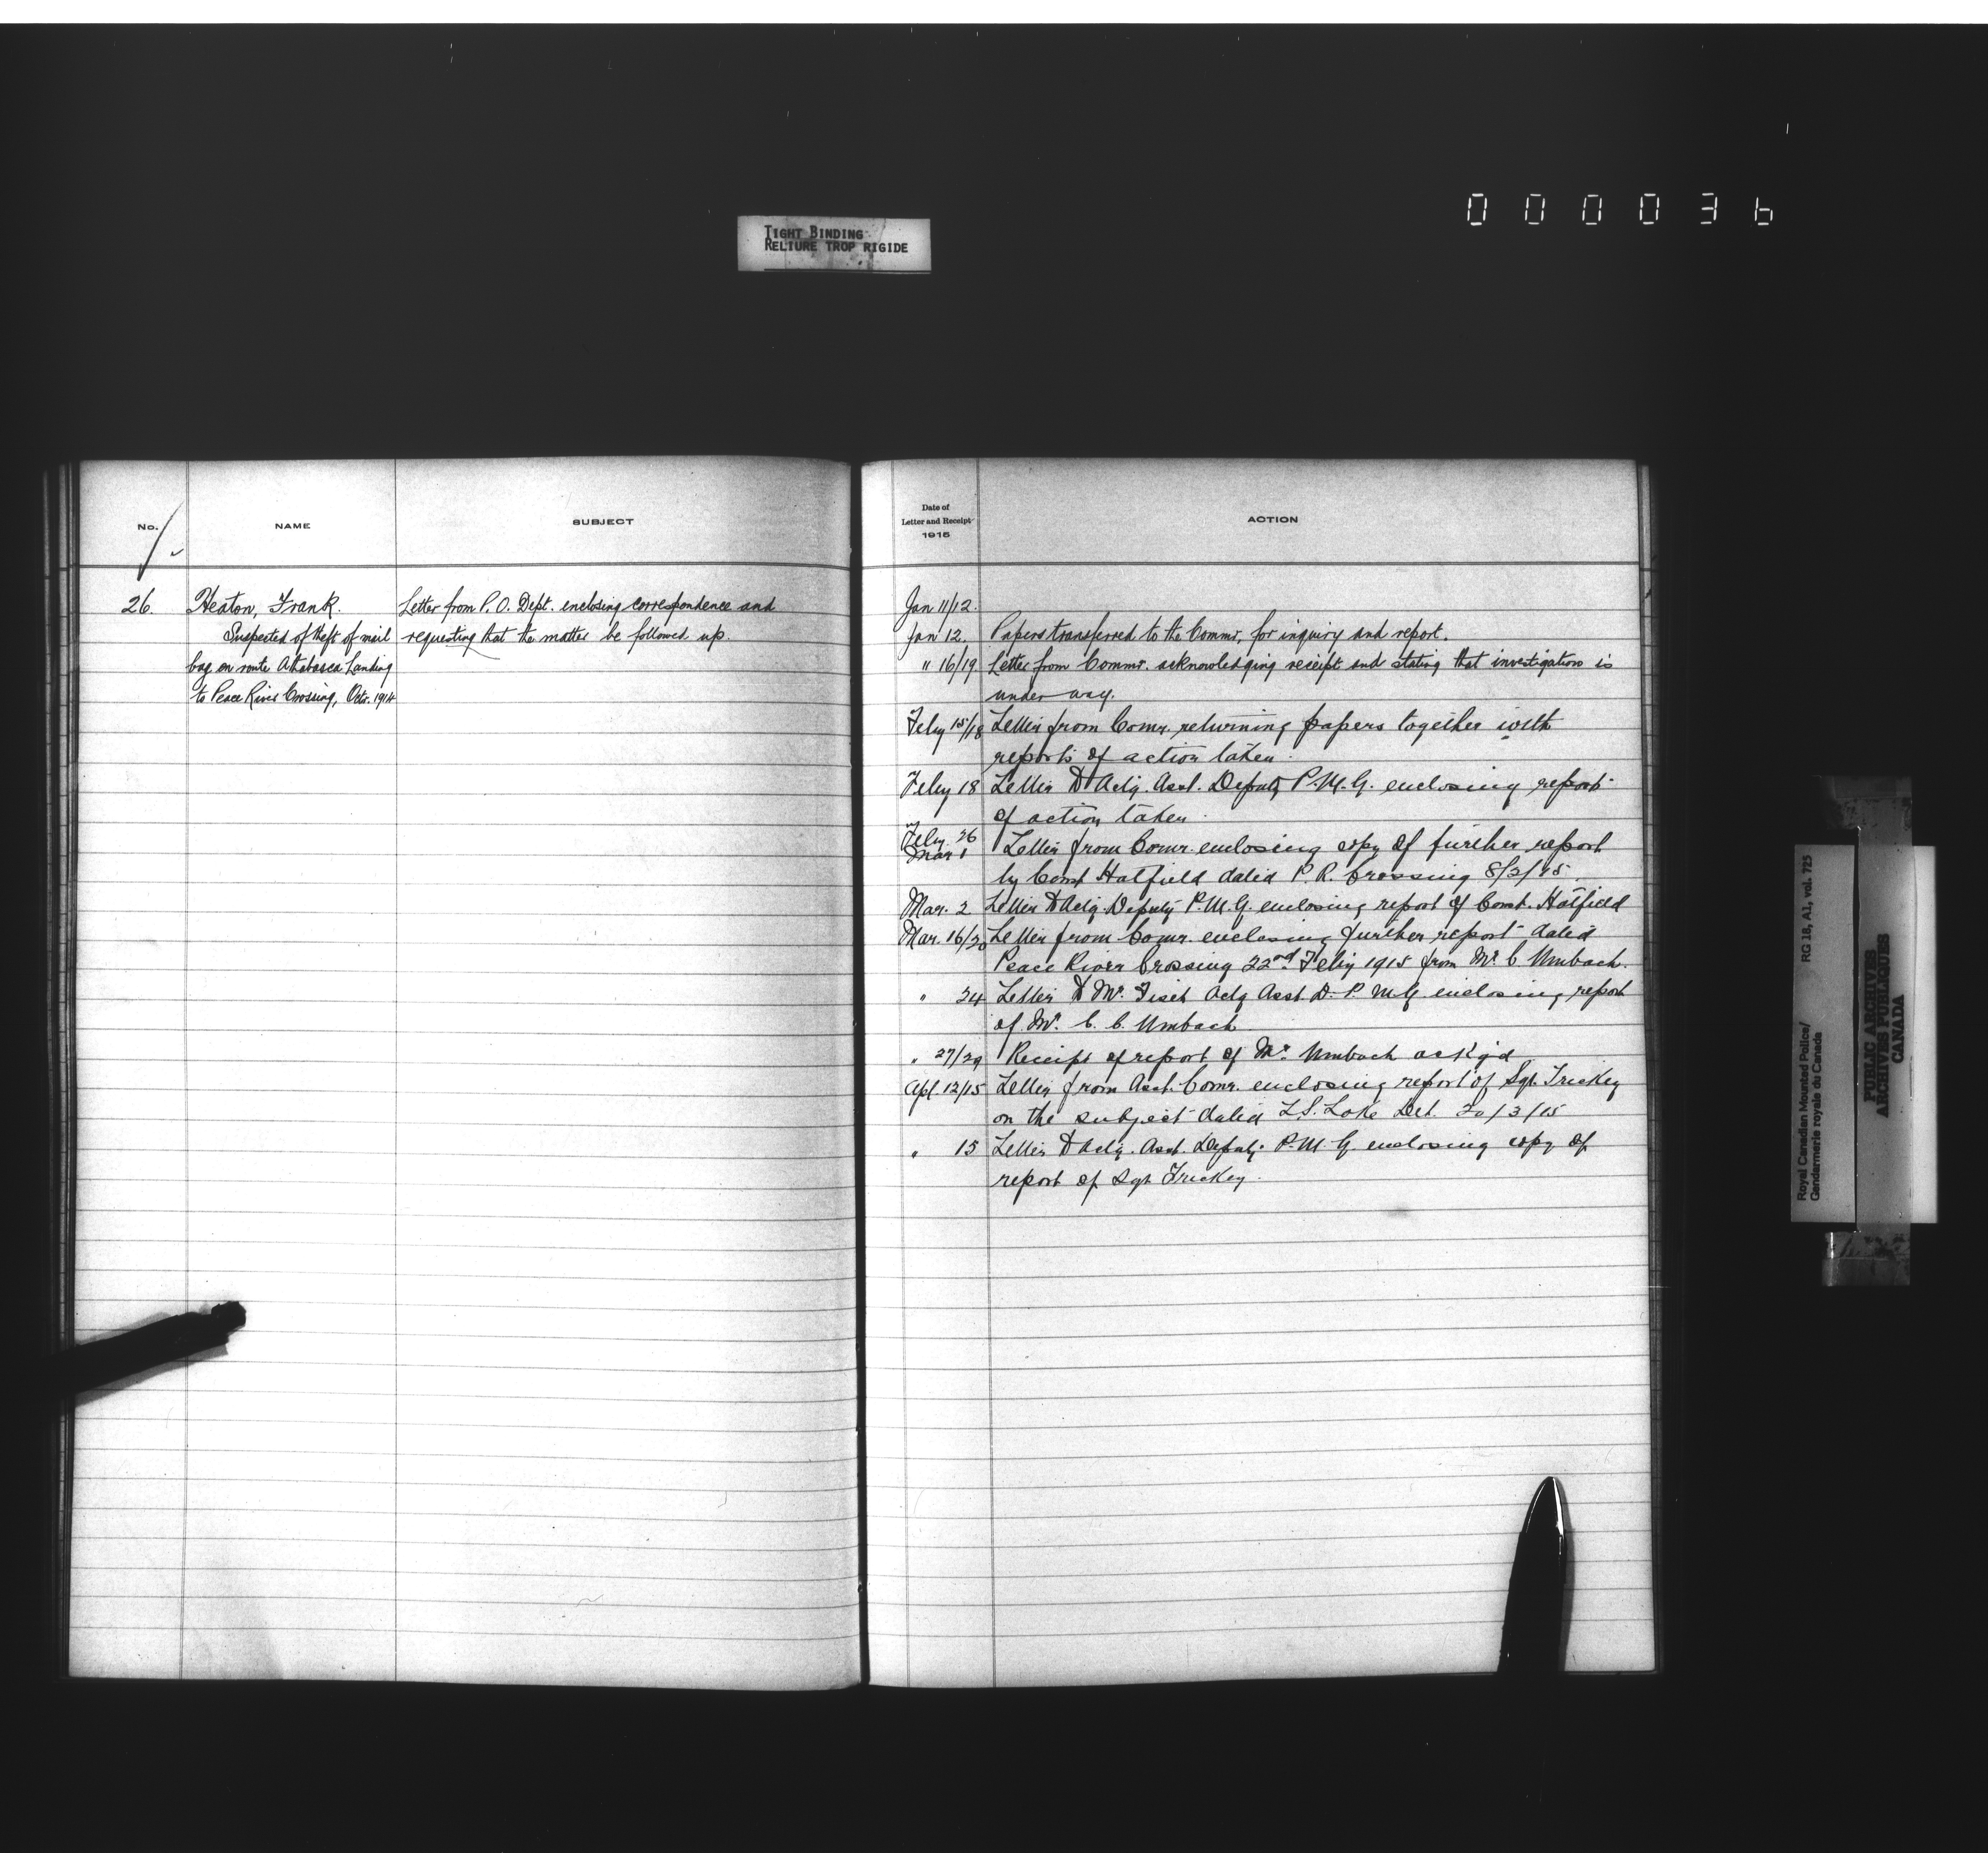 000036
TIGHT BINDING
RELIURE TROP RIGIDE
No.
NAME
SUBJECT
26.
Heaton, Frank.
Suspected of theft of mail
bag en route Athabasca Landing
to Peace River Crossing, Octr. 1914
Letter from P. O. Dept. enclosing correspondence and
requesting that the matter be followed up.
Date of
Letter and Receipt
1915
ACTION
Jan 11/12.
Jan 12. Papers transferred to the Commr. for inquiry and report.
" 16/19 Letter from Commr. acknowledging receipt and stating that investigation is
under way.
Feby 15/18 Letter from Comr. returning papers together with
reports of action taken.
Feby 18 Letter to Actg. Asst. Deputy P.M.G. enclosing report
of action taken.
Feby. 26
Mar 1 Letter from Comr. enclosing copy of further report
by Const Hatfield dated P. R. Crossing 8/2/15.
Mar. 2 Letter to Actg. Deputy P.M.G. enclosing report of Const. Hatfield
Mar. 16/20 Letter from Comr. enclosing further report dated
Peace River Crossing 22nd Feby 1915 from Mr. C Umbach.
" 24 Letter to Mr. Fiset Actg Asst. D. P. M.G. enclosing report
of Mr. C. C. Umbach
" 27/29 Receipt of report of Mr. Umbach ack'g'd
Apl. 12/15 Letter from Asst. Comr. enclosing report of Sgt. Trickey
on the subject dated L.S. Lake Det. 20/3/15
" 15 Letter to Actg. Asst. Deputy P.M.G. enclosing copy of
report of Sgt Trickey.
Royal Canadian Mounted Police/ RG 18, A1, vol. 725
Gendarmerie royale du Canada
PUBLIC ARCHIVES
ARCHIVES PUBLIQUES
CANADA